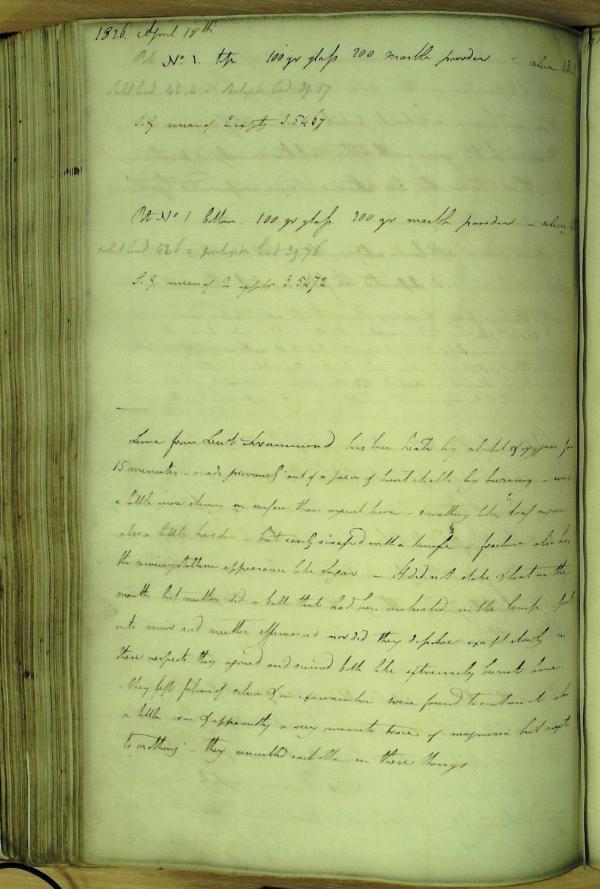 1826. April 18th
Pot No 1. top 100 gr glass 200 marble powder
Sulphd lead 42.4 = Protoxide lead 29.57
S.G. mean of 2 expts 3.5457
Pot No 1 bottom 100 gr glass 200 gr marble powder
lead 426 = protoxide lead
S.G. mean of 2 expts 3.5472
Lime from Lieut Drummond has been heated by alcohol & oxygen for
15 minutes - made previously out of a piece of burnt chalk by burning - was
a little more shining on surface than usual lime - something like loaf sugar
also a little harder - but easily scraped with a knife - fracture also has
the minicrystalline appearance like sugar - It did not slake & heat in the
mouth but neither did a ball that had been unheated in the lamp - put
into water and neither effervesced nor did they slake except slowly in
these respects they agreed and seemed both like extremely burnt lime
They left films of silica & on examination were found to contain it also
a little iron & apparently a very minute trace of magnesia but
to nothing - they resembled each other in these things